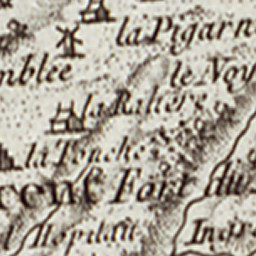 la Pigarn
mblée
le Noy
la Raliere
la Touche
cent Fort du
l'Hopitau
Ingr